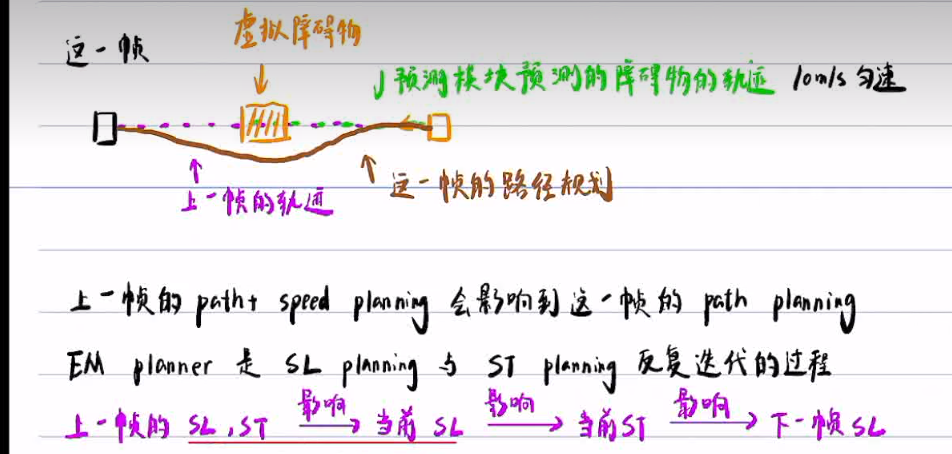 虚拟障碍物
这一帧
预测模块预测的障碍物的轨迹 10m/s 匀速
上一帧的轨迹
这一帧的路径规划
上一帧的 path+ speed planning 会影响到这一帧的 path planning
EM planner 是 SL planning 与 ST planning 反复迭代的过程
上一帧的 SL,ST 影响 当前 SL 影响 当前ST 影响 下一帧 SL